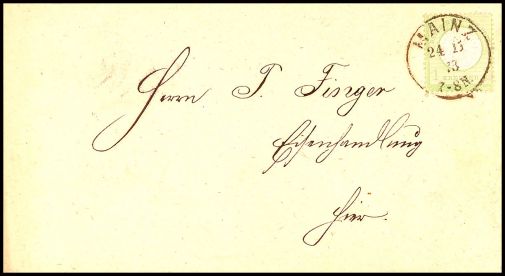 MAINZ
24 11
73
7-8N.
Herrn P. Finger
Eisenhandlung
hier.